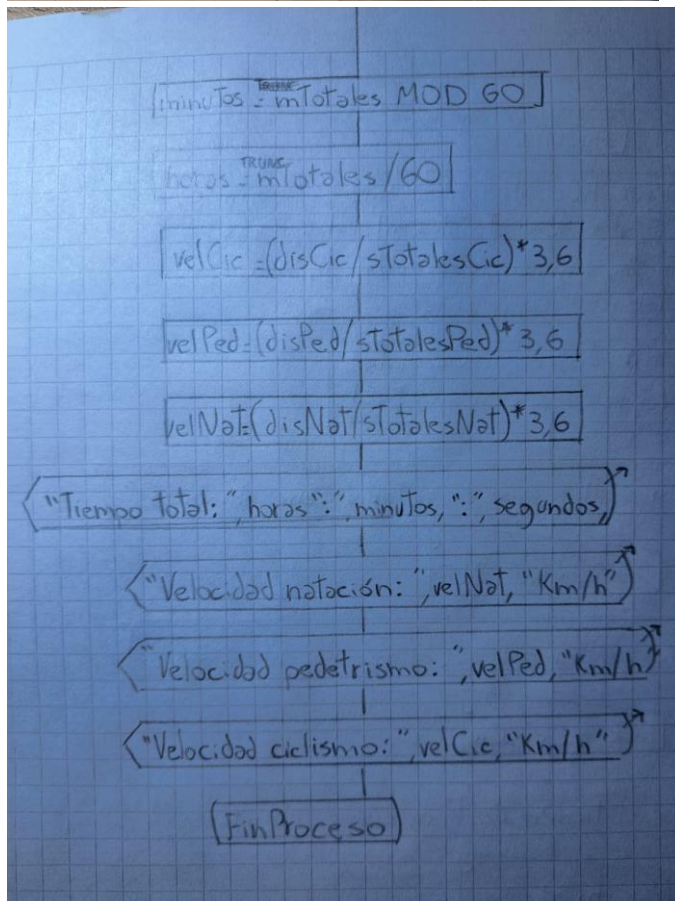 minutos = mTotales MOD 60
TRUNC
horas = mTotales/60
velCic =(disCic/sTotalesCic)*3,6
velPed=(disPed/sTotalesPed)*3,6
velNat=(disNat/sTotalesNat)*3,6
"Tiempo total: ", horas ":", minutos, ":", segundos,
"Velocidad natación: ", velNat, "Km/h"
"Velocidad pedetrismo: ", velPed, "Km/h
"Velocidad ciclismo: ", velCic, "Km/h"
FinProceso